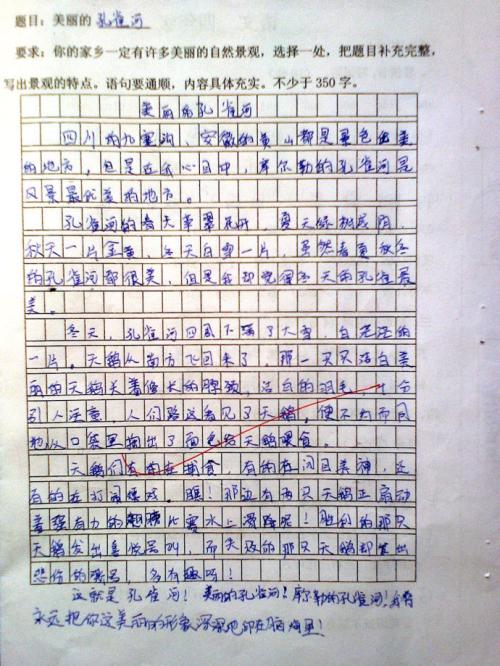 题目：美丽的 孔雀河
要求：你的家乡一定有许多美丽的自然景观，选择一处，把题目补充完整，
写出景观的特点。语句要通顺，内容具体充实。不少于 350 字。
美丽的孔雀河
四川的九寨沟，安徽的黄山都是景色优美
的地方，但是在我心目中，库尔勒的孔雀河是
风景最优美的地方。
孔雀河的春天草翠花开，夏天绿树成阴，
秋天一片金黄，冬天白雪一片，虽然春夏秋冬
的孔雀河都很美，但是我却觉得冬天的孔雀最
美。
冬天，孔雀河四周下满了大雪，白茫茫的
一片。天鹅从南方飞回来了，那一只只洁白美
丽的天鹅长着修长的脖颈，洁白的羽毛，十分
引人注意，人们路过看见了天鹅，便不约而同
地从口袋里掏出了面包给天鹅喂食。
天鹅们有的在捕食，有的在闭目养神，还
有的在打闹嬉戏。瞧！那边有两只天鹅正扇动
着强有力的翅膀比赛水上滑翔呢！胜利的那只
天鹅发出喜悦的叫，而失败的那只天鹅却发出
悲伤的鸣号，多有趣呀！
这就是孔雀河！美丽的孔雀河！库尔勒的孔雀河！我会
永远把你这美丽的形象深深地印在脑海里！